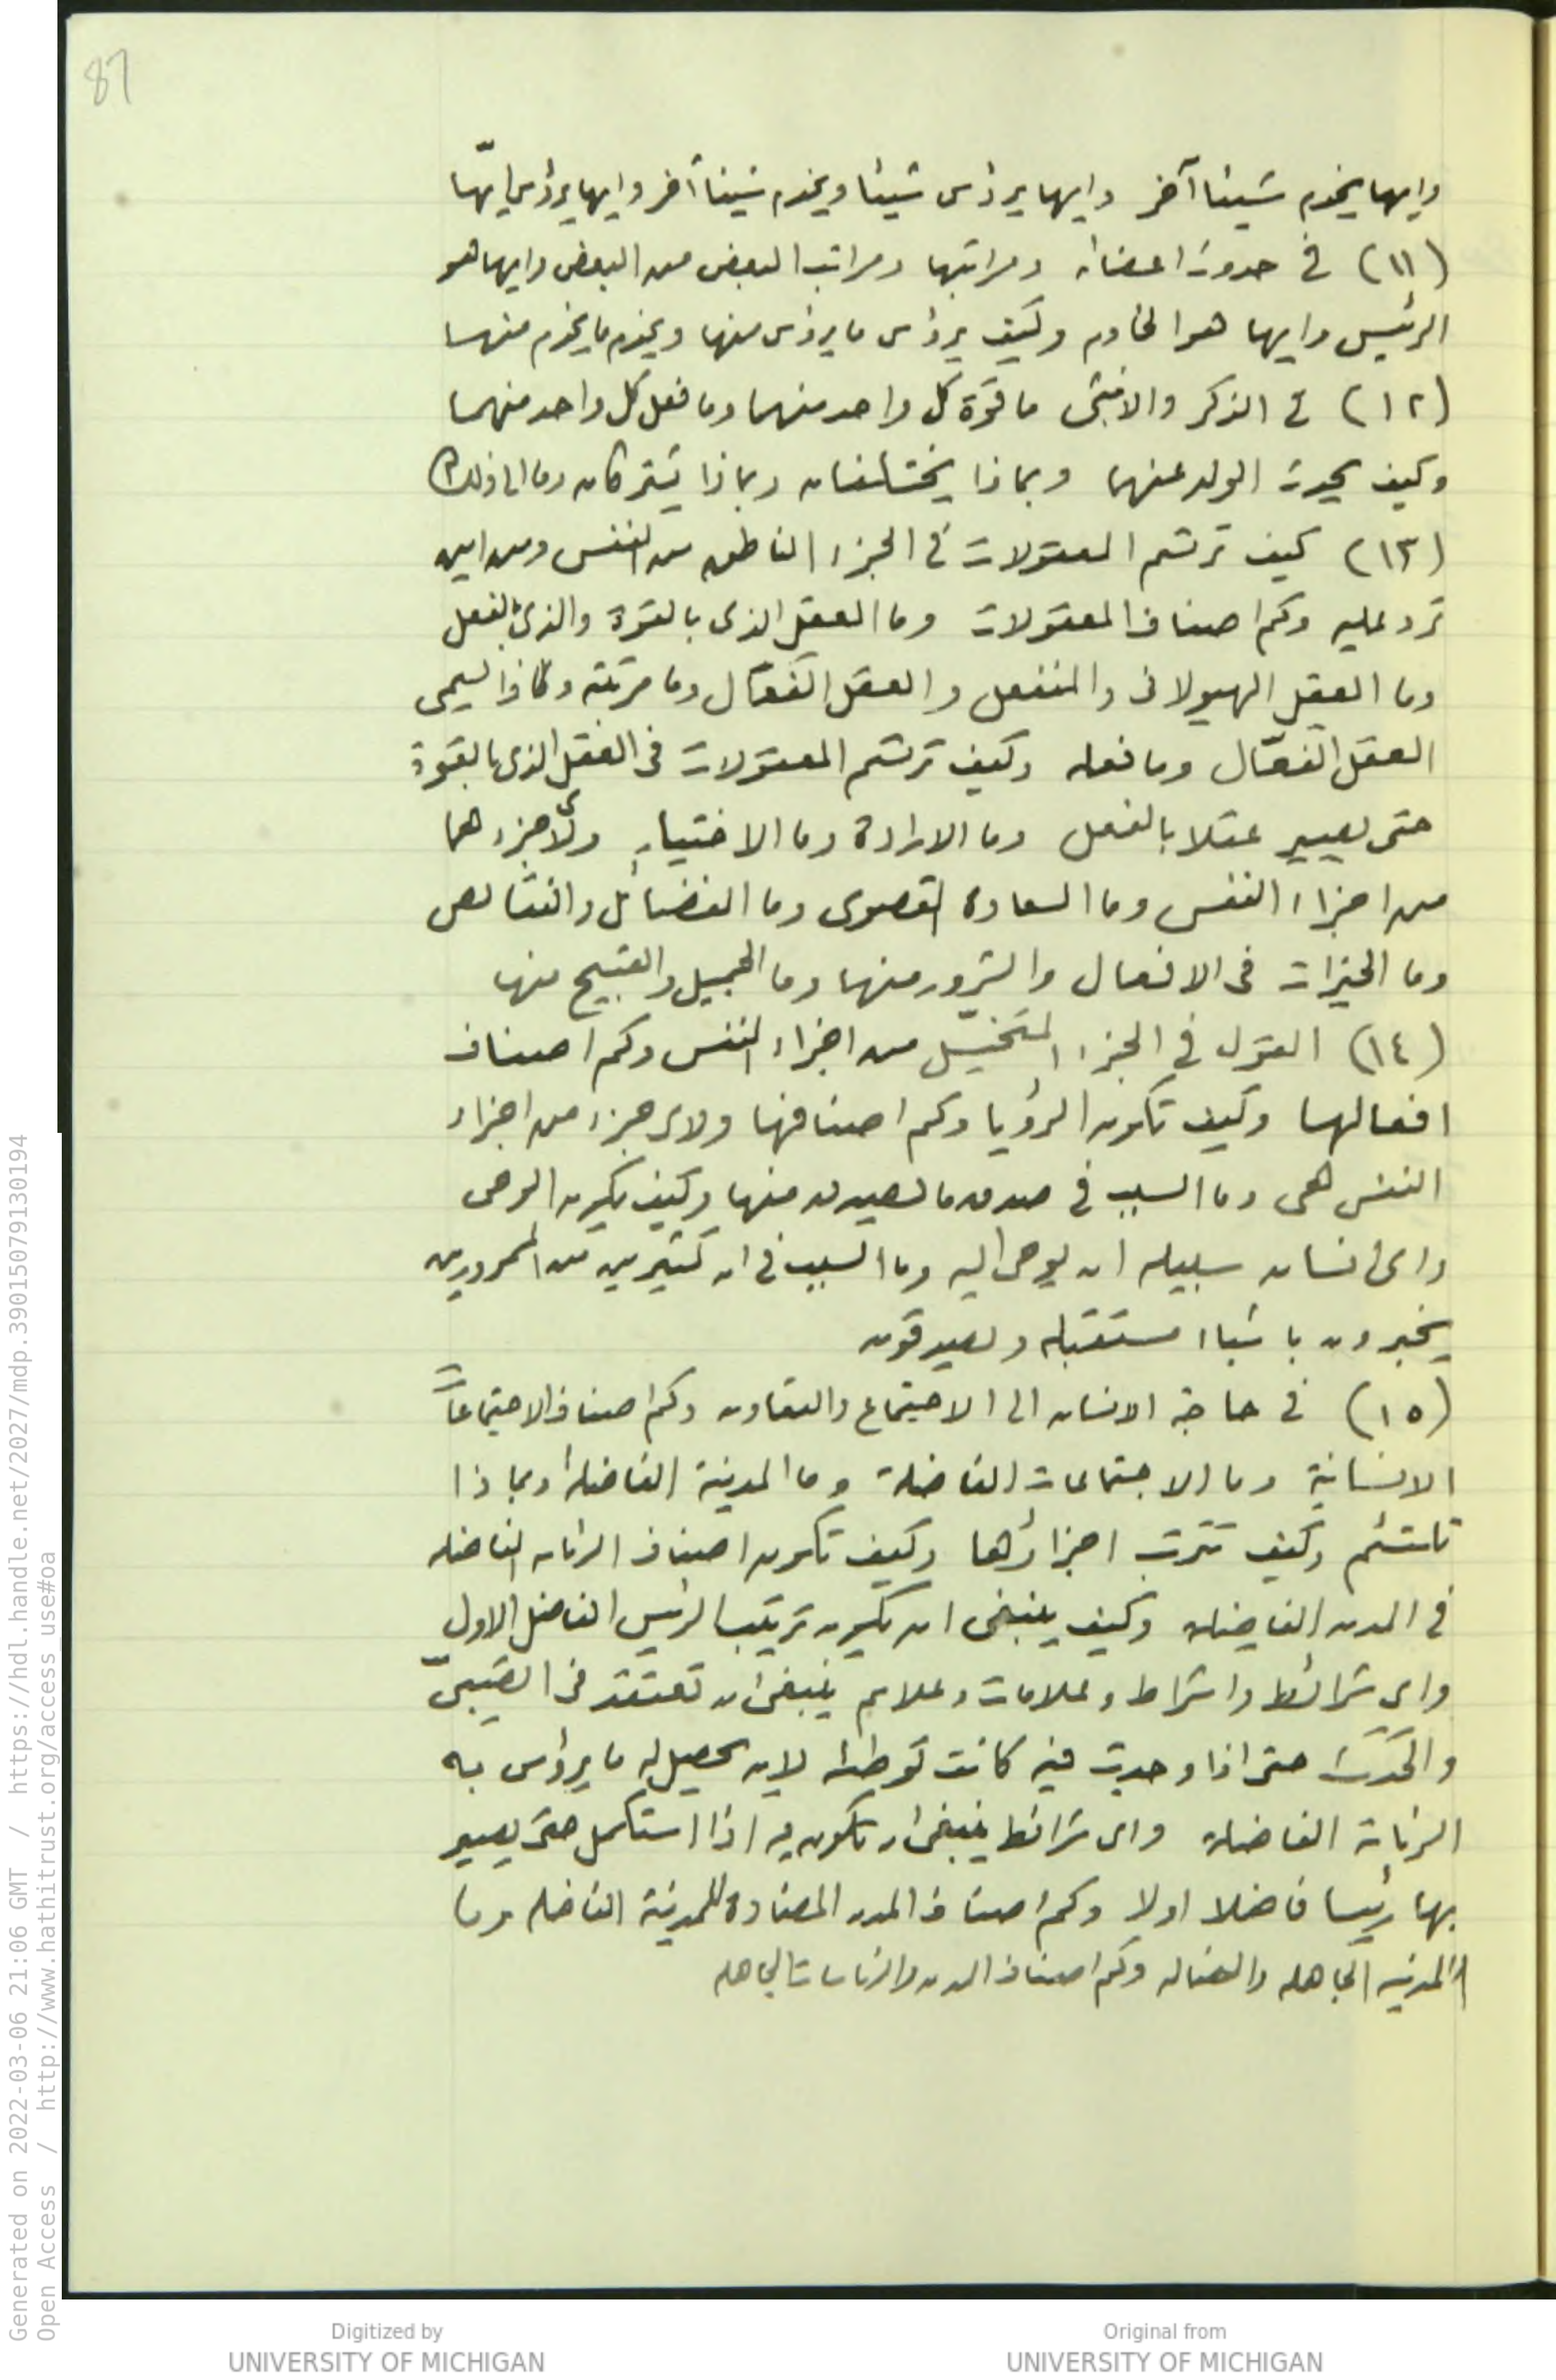 87
وايها يخدم شيئا آخر وايها يرؤس شيئا ويخدم شيئا آخر وايها يرؤس ايها
(١١) في حدوث اعضائه ومراتبها ومراتب البعض من البعض وايها هو
الرئيس وايها هو الخادم وكيف يرؤس ما يرؤس منها ويخدم ما يخدم منها
(١٢) في الذكر والانثى ما قوّة كل واحد منهما وما فعل كل واحد منهما
وكيف يحدث الولد عنهما وبماذا يختلفان وبماذا يشتركان وما الى ذلك
(١٣) كيف ترتسم المعقولات في الجزء الناطق من النفس ومن اين
ترد عليه وكم اصناف المعقولات وما العقل الذى بالقوة والذى بالفعل
وما العقل الهيولانى والمنفعل والعقل الفعّال وما مرتبته ولماذا يسمى
العقل الفعّال وما فعله وكيف ترتسم المعقولات فى العقل الذى بالقوة
حتى يصير عقلا بالفعل وما الارادة وما الاختيار ولأى جزء هما
من اجزاء النفس وما السعادة القصوى وما الفضائل والنقائص
وما الخيرات فى الافعال والشرور منها وما الجميل والقبيح منها
(١٤) القول في الجزء المتخيّل من اجزاء النفس وكم اصناف
افعالها وكيف تكون الرؤيا وكم اصنافها ولاى جزء من اجزاء
النفس هى وما السبب في صدق ما يصدق منها وكيف يكون الوحى
واى انسان سبيله ان يوحى اليه وما السبب في ان كثيرين من الممرورين
يخبرون باشياء مستقبله ويصدقون
(١٥) في حاجة الانسان الى الاجتماع والتعاون وكم اصناف الاجتماعات
الانسانية وما الاجتماعات الفاضلة وما المدينة الفاضلة وبماذا
تلتئم وكيف تترتب اجزاؤها وكيف تكون اصناف الرئاسه الفاضله
في المدن الفاضلة وكيف ينبغى ان يكون ترتيب الرئيس الفاضل الاول
واى شرائط واشراط وعلامات وعلائم ينبغى ان تعتقد فى الصّبىّ
والحَدَث حتى اذا وجدت فيه كانت توطئه لان يحصل له ما يرؤس به
الرئاسة الفاضلة واى شرائط ينبغى ان تكون فيه اذا استكمل حتى يصير
بها رئيسا فاضلا اولا وكم اصناف المدن المضادة للمدينة الفاضله وما
المدينه الجاهله والضاله وكم اصناف المدن والرئاسات الجاهله
Generated on 2022-03-06 21:06 GMT / https://hdl.handle.net/2027/mdp.39015079130194
Open Access / http://www.hathitrust.org/access_use#oa
Digitized by
UNIVERSITY OF MICHIGAN
Original from
UNIVERSITY OF MICHIGAN